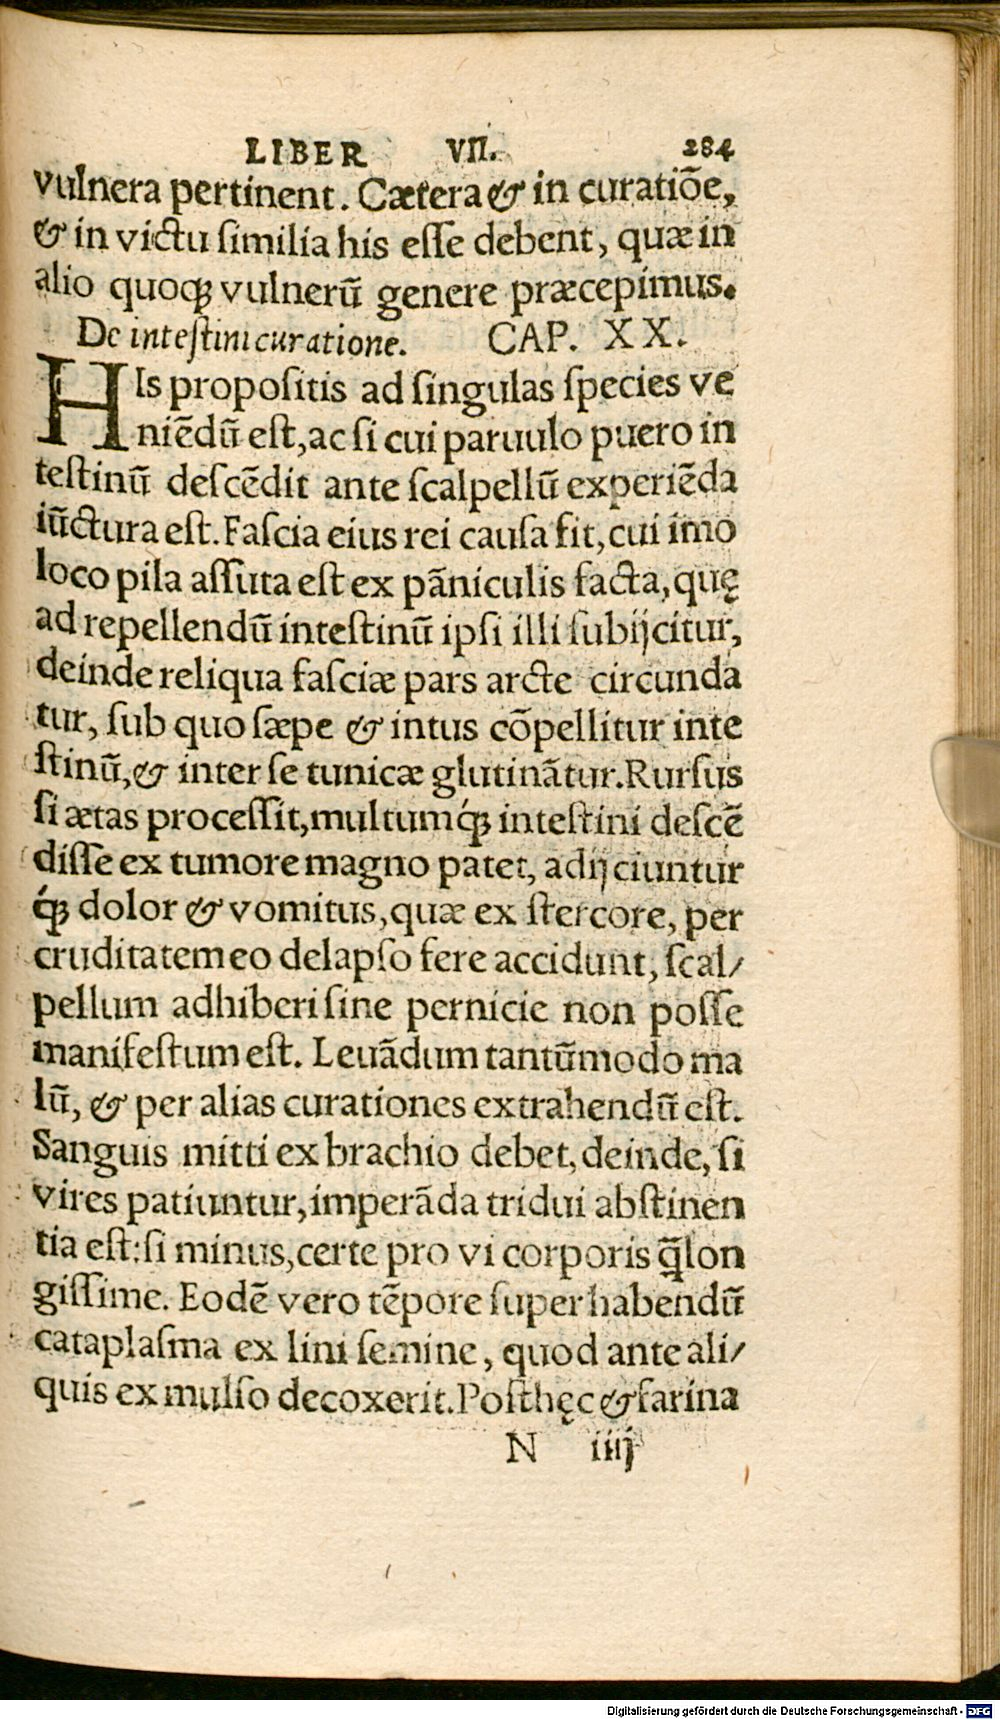 LIBER VII. 284
vulnera pertinent. Cætera & in curatiõe,
& in victu ſimilia his eſſe debent, quæ in
alio quoqꝫ vulnerũ genere præcepimus.
De inteſtini curatione. CAP. XX.
HIs propoſitis ad ſingulas ſpecies ve
niẽdũ eſt, ac ſi cui paruulo puero in
teſtinũ deſcẽdit ante ſcalpellũ experiẽda
iũctura eſt. Faſcia eius rei cauſa fit, cui imo
loco pila aſſuta eſt ex pãniculis facta, quę
ad repellendũ inteſtinũ ipſi illi ſubijcitur,
deinde reliqua faſciæ pars arcte circunda
tur, ſub quo ſæpe & intus cõpellitur inte
ſtinũ, & inter ſe tunicæ glutinãtur. Rurſus
ſi ætas proceſſit, multumq́ꝫ inteſtini deſcẽ
diſſe ex tumore magno patet, adijciuntur
q́ꝫ dolor & vomitus, quæ ex ſtercore, per
cruditatem eo delapſo fere accidunt, ſcal/
pellum adhiberi ſine pernicie non poſſe
manifeſtum eſt. Leuãdum tantũmodo ma
lũ, & per alias curationes extrahendũ eſt.
Sanguis mitti ex brachio debet, deinde, ſi
vires patiuntur, imperãda tridui abſtinen
tia eſt: ſi minus, certe pro vi corporis q̃ lon
giſſime. Eodẽ vero tẽpore ſuperhabendũ
cataplaſma ex lini ſemine, quod ante ali/
quis ex mulſo decoxerit. Poſthęc & farina
N iiij
Digitalisierung gefördert durch die Deutsche Forschungsgemeinschaft - DFG